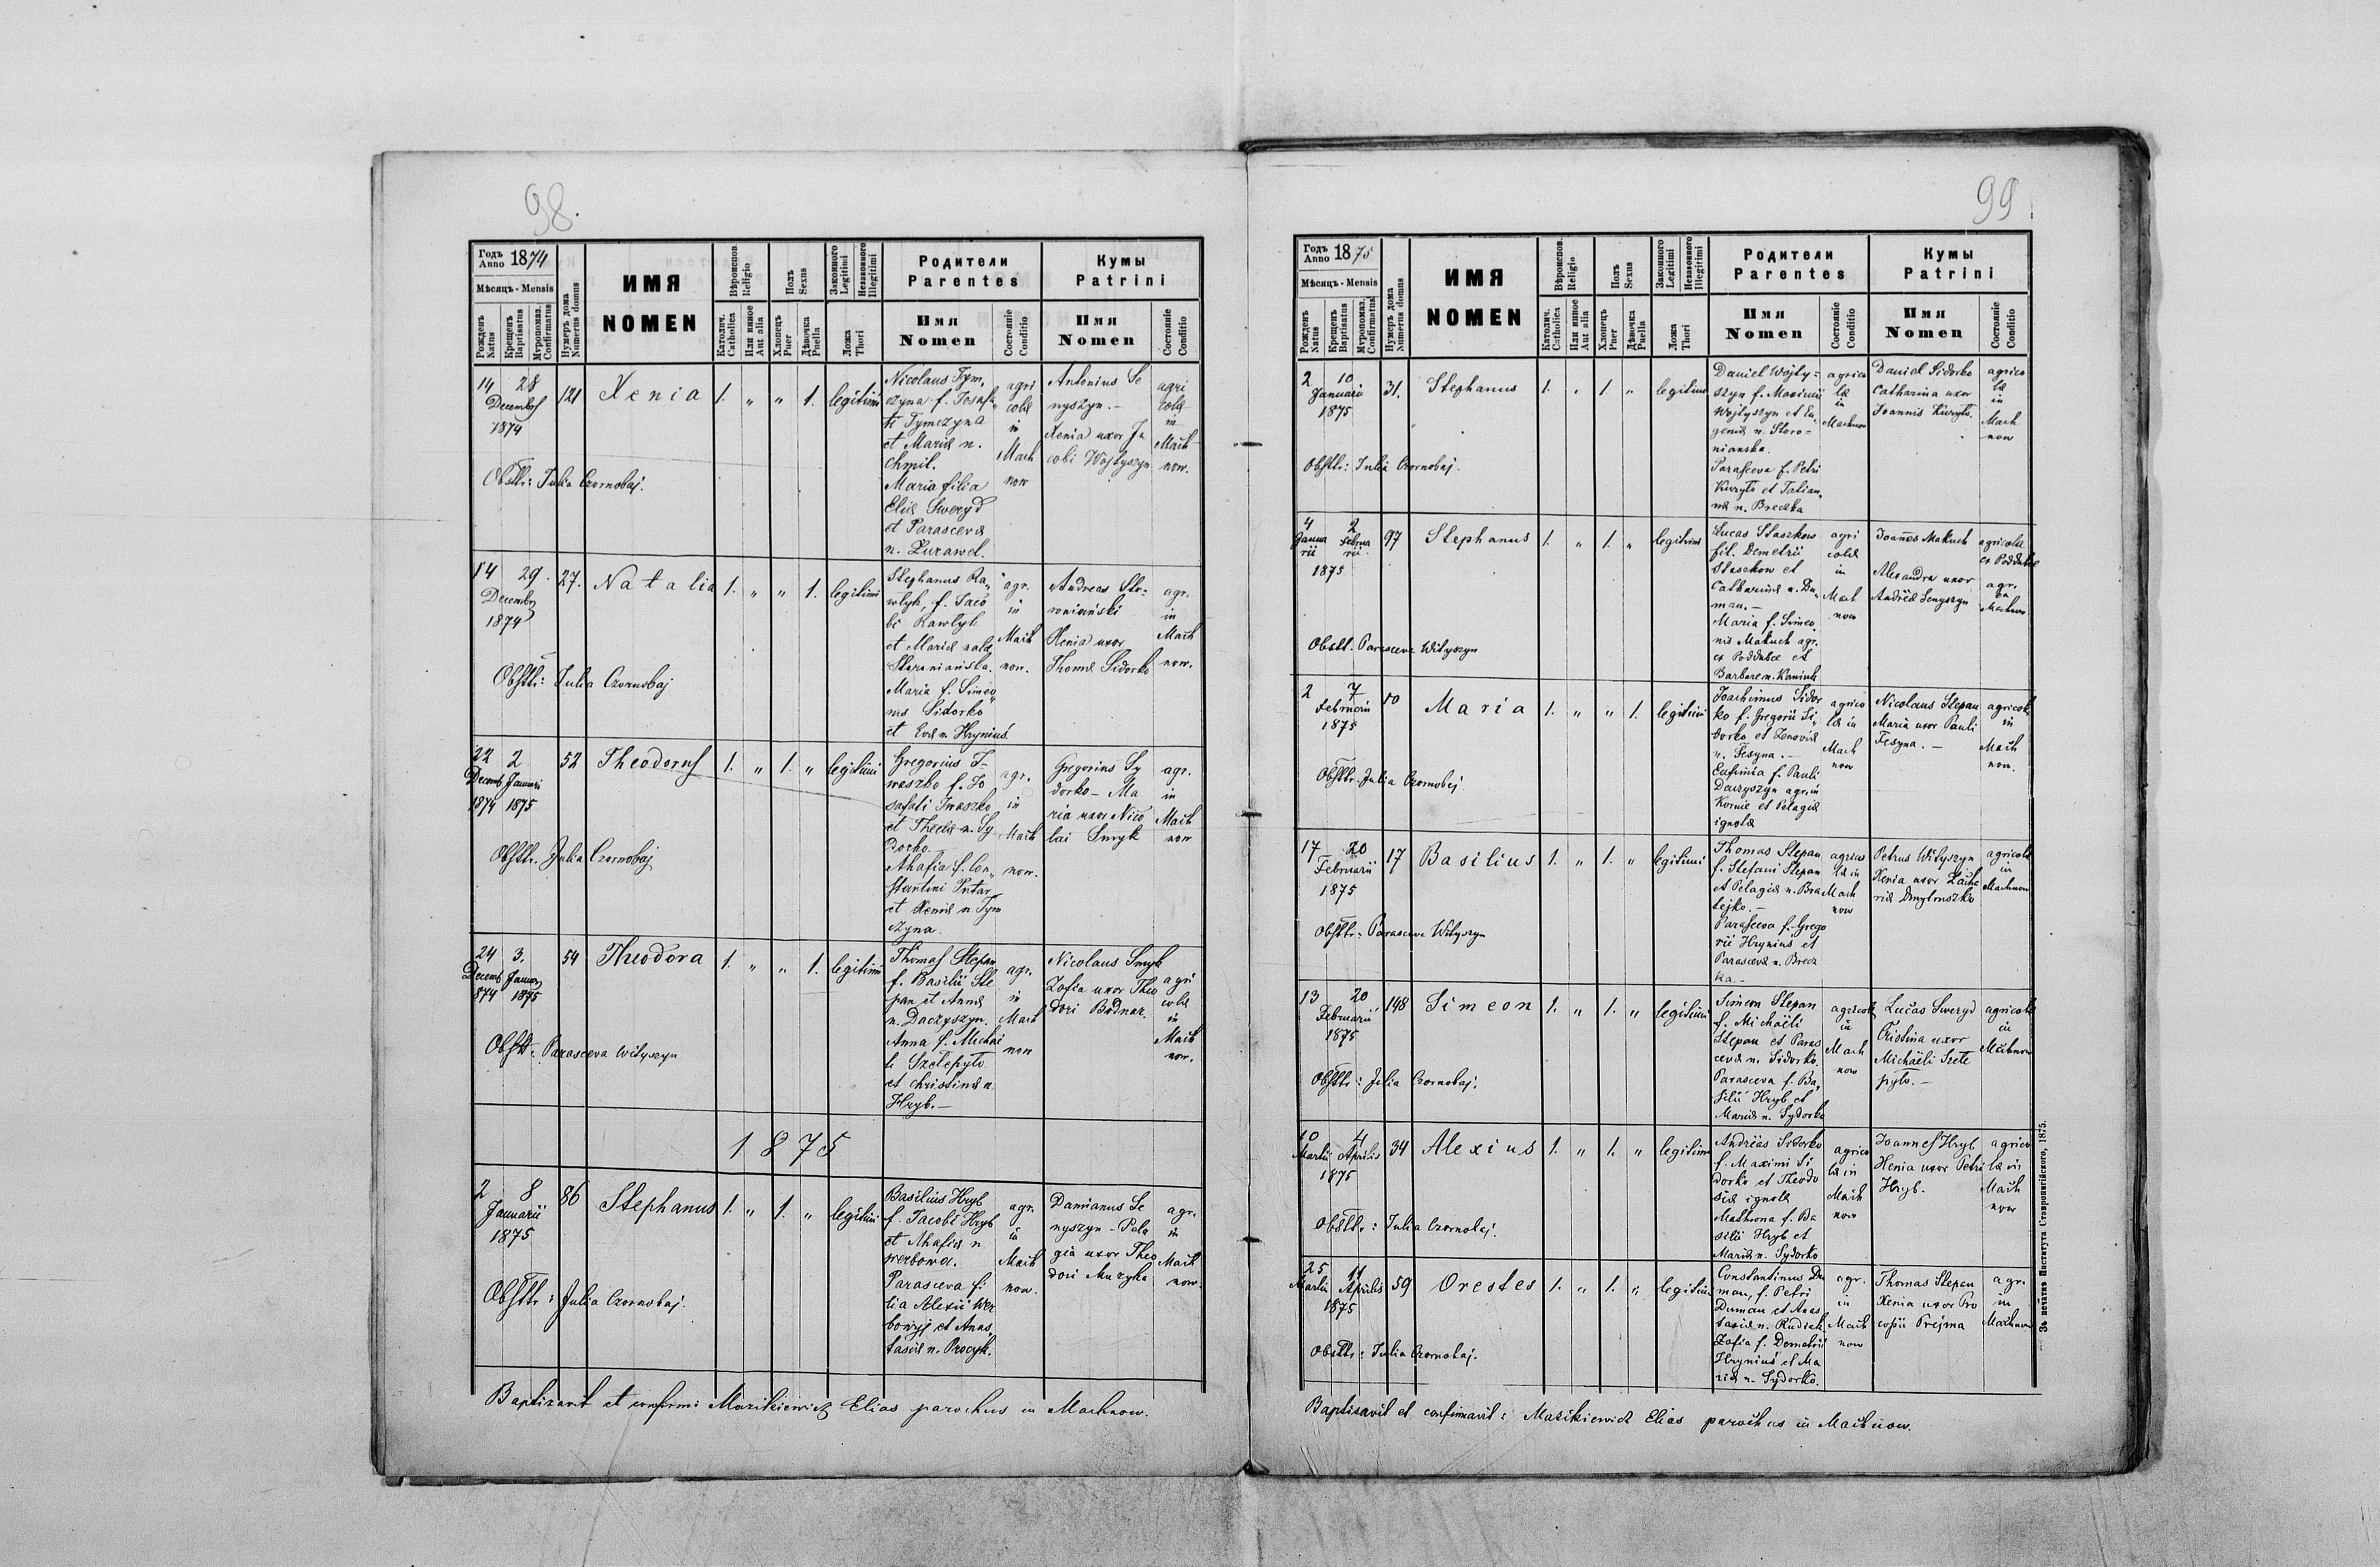 98.
Годъ Anno 1874
Мѣсяцъ - Mensis
Рожденъ Natus
Крещенъ Baptisatus
Мѵропомаз. Confirmatus
Нумеръ дома Numerus domus
ИМЯ
NOMEN
Вѣроиспов. Religio
Католич. Catholica
Или иное Aut alia
Полъ Sexus
Хлопецъ Puer
Дѣвочка Puella
Законного Legitimi
Незаконного Illegitimi
Ложа Thori
Родители
Parentes
Имя
Nomen
Состояніе Conditio
Кумы
Patrini
Имя
Nomen
Состояніе Conditio
14 28
Decembr
1874
121
Xenia
1. " " 1.
legitimi
Nicolaus Tym,
czyna f. Josafa
ti Tymczyna
et Maria n.
Chmil.
Maria filia
Eliæ Sweryd
et Parascevæ
n. Zurawel.
agri
colæ
in
Mach
now
Antonius Se
nyszyn. -
Xenia uxor Ja
cobi Wojtyszyn
agri
colæ
in
Mach
now.
Obsttr: Julia Czornobaj.
14 29.
Decembr
1874
27.
Natalia
1. " " 1.
legitimi
Stephanus Ra„
wlyk, f. Jaco
bi Rawlyk
et Mariæ natæ
Storoniańska.
Maria f. Simeo
nis Sidorko
et Evæ n. Hryniuś
agr.
in
Mach
now.
Andreas Sto-
roniański
Xenia uxor
Thomæ Sidorko
agr.
in
Mach
now.
Obsttr: Julia Czornobaj
22 2
Decemb Januari
1874 1875
52
Theodorus
1. " 1. "
legitimi
Gregorius I-
waszko f. Jo
safati Iwaszko
et Theclæ n. Sy
dorko.
Ahafia f. Con„
stantini Putar
et Xeniæ n. Tym
czyna.
agr.
in
Mach
now.
Gregorius Sy
dorko - Ma
ria uxor Nico
lai Smyk
agr.
in
Mach
now
Obsttr. Julia Czornobaj
24 3.
Decemb Januar
874 1875
54
Theodora
1. " " 1.
legitimi
Thomas Stepan
f. Basilii Ste
pan et Annæ
n. Daczyszyn.
Anna f. Michae
li Szelepyto
et Christinæ n
Hryb. -
agr.
in
Mach
now
Nicolaus Smyk
Zofia uxor Theo
dori Bodnar.
agri
colæ
in
Mach
now.
Obsttr. Parasceva Wityszyn
1875
2 8
Januarii
1875
86
Stephanus
1. " 1. "
legitimi
Basilius Hryb
f. Jacobi Hryb
et Ahafiæ n
werbowa.
Parasceva fi
lia Alexii Wer
bowyj et Anas„
tasiæ n. Procyk.
agr.
in
Mach
now.
Damianus Se
nyszyn - Pela
gia uxor Theo
dori Muzyka
agr.
in
Mach
now.
Obsttr: Julia Czornobaj.
Baptizavit et confirmi Mazikiewicz Elias parochus in Machnow.
99
Годъ Anno 1875
Мѣсяцъ - Mensis
Рожденъ Natus
Крещенъ Baptisatus
Мѵропомаз. Confirmatus
Нумеръ дома Numerus domus
ИМЯ
NOMEN
Вѣроиспов. Religio
Католич. Catholica
Или иное Aut alia
Полъ Sexus
Хлопецъ Puer
Дѣвочка Puella
Законного Legitimi
Незаконного Illegitimi
Ложа Thori
Родители
Parentes
Имя
Nomen
Состояніе Conditio
Кумы
Patrini
Имя
Nomen
Состояніе Conditio
2 10
Januarii
1875
31.
Stephanus
1. " 1 "
legitimi
Daniel Wojty-
szyn f. Maximi
Wojtyszyn et Eu„
geniæ n. Storo-
nianska.
Parasceva f. Petri
Kuryto et Tatian„
næ n. Breczka
agrico
læ
in
Machnow
Daniel Sidorko
Catharina uxor
Joannis Kuryto.
agrico
læ
in
Mach
now
Obsttr: Julia Czornobaj.
4 2
Janua Februa
rii rii.
1875
97
Stephanus
1. " 1. "
legitimi
Lucas Staszkow
fil. Demetrii
Staszkow et
Catharinæ n. Du„
man. -
Maria f. Simeo„
nis Makuch agr.
ex Poddubce et
Barbare n. Kaminsk
agri
colæ
in
Mach
now
Joannes Makuch
Alexandra uxor
Andreæ Senyszyn
agricola
ex Poddubce
agr.
in
Machnow
Obstt. Parasceve Wityszyn
2 7
Februarii
1875
10
Maria
1. " " 1.
legitimi
Joachimus Sidor
ko f. Gregorii Si„
dorko et Zenoviæ
n. Fesyna. -
Eufimia f. Pauli
Daczyszyn agr. in
Kornie et Pelagiæ
ignotæ
agrico
læ in
Mach
now
Nicolaus Stepan
Maria uxor Pauli
Fesyna. -
agricolæ
in
Mach
now.
Obsttr. Julia Czornobaj
17 20
Februarii
1875
17
Basilius
1. " 1. "
legitimi
Thomas Stepan
f. Stefani Stepan
et Pelagiæ n. Bra
tejko. -
Parasceva f. Grego
rii Hryniuś et
Parascevæ n. Brecz
ka. -
agrico
læ in
Mach
now
Petrus Wityszyn
Xenia uxor Zacha
riæ Dmytruszko
agricolæ
in
Machnow
Obsttr. Parasceve Wityszyn
13 20
Februarii
1875
148
Simeon
1. " 1. "
legitimi
Simeon Stepan
f. Michaeli
Stepan et Paras
cevæ n. Sidorko.
Parasceva f. Ba„
silii Hryb et
Mariæ n. Sydorko
agricolæ
in
Mach
now
Lucas Sweryd
Cristina uxor
Michaeli Szele
pyto. -
agricolæ
in
Machnow
Obsttr: Julia Czornobaj.
10 4
Martii Aprilis
1875
34
Alexius
1. " 1. "
legitimi
Andreas Sidorko
f. Maximi Si
dorko et Theodo
siæ ignotæ
Mathrona f. Ba
silii Hryb et
Mariæ n. Sydorko
agrico
læ in
Mach
now
Joannes Hryb
Xenia uxor Petri
Hryb.
agrico
læ in
Mach
now
Obsttr: Julia Czornobaj.
25 11
Martii Aprilis
1875
59
Orestes
1. " 1. "
legitimi
Constantinus Du
man, f. Petri
Duman et Anas
tasiæ n. Rudiak
Zofia f. Demetrii
Hryniuś et Ma
riæ n. Sydorko.
agr.
in
Mach
now
Thomas Stepan
Xenia uxor Pro
copii Prejma
agr.
in
Machnow
Obsttr: Julia Czornobaj.
Baptisavit et confirmavit: Mazikiewicz Elias parochus in Machnow.
Зъ печатнѣ Института Ставропигійского, 1875.